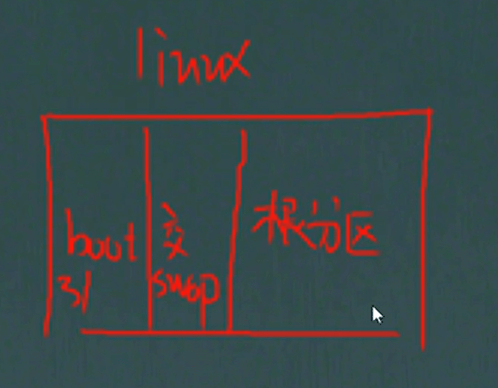 linux
boot
引
交
swap
根分区